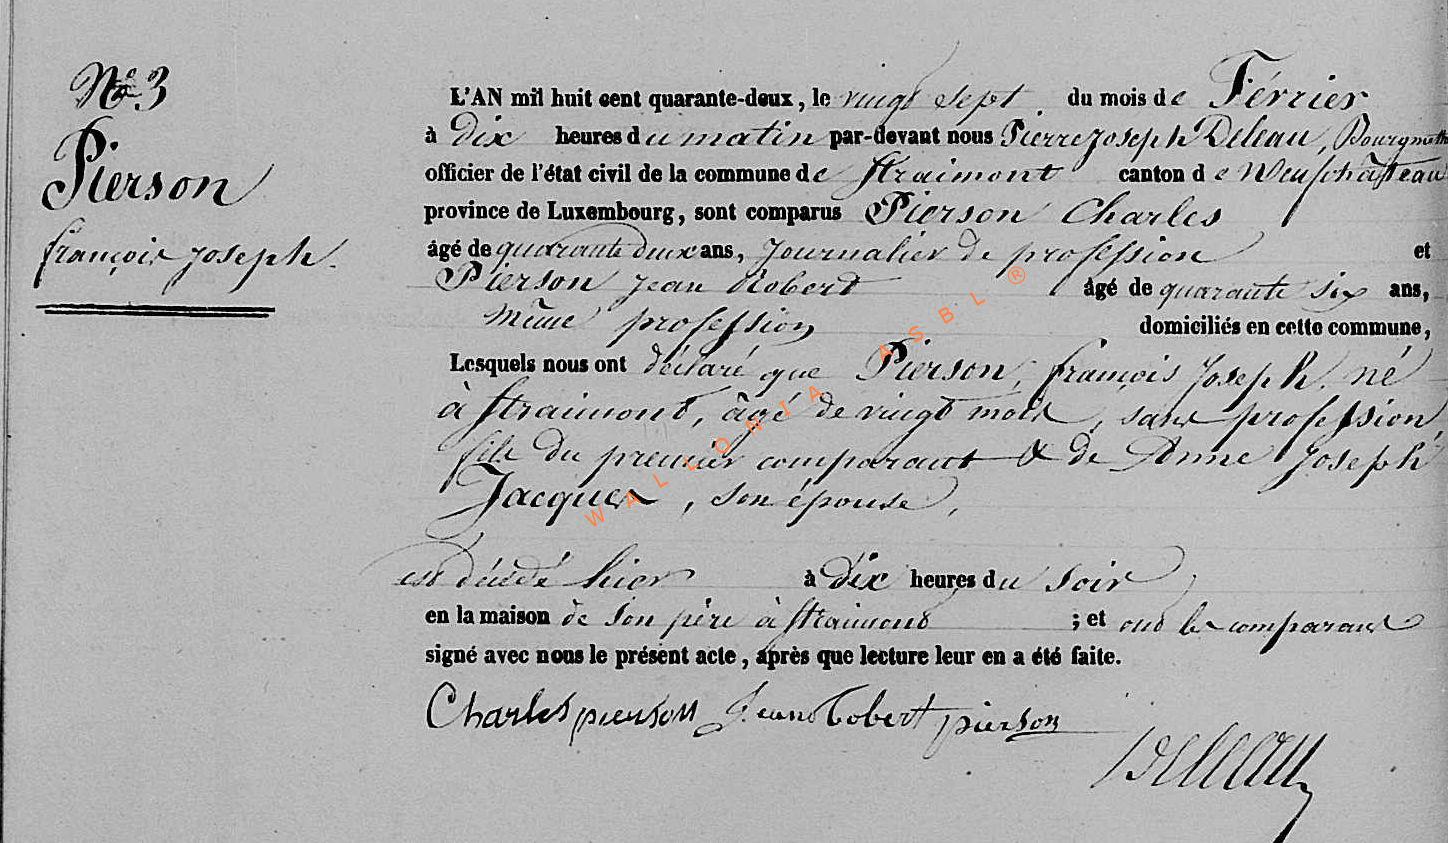 No. 3
Pierson
françois Joseph.
L'AN mil huit cent quarante-deux, le vingt sept du mois de Février
à Dix heures du matin par-devant nous Pierre Joseph Deleau, Bourgmtre
officier de l'état civil de la commune de Straimont canton de Neufchâteau
province de Luxembourg, sont comparus Pierson Charles
âgé de quarante deux ans, Journalier de profession et
Pierson Jean Robert âgé de quarante six ans,
même profession domiciliés en cette commune,
Lesquels nous ont déclaré que Pierson, françois Joseph, né
à Straimont, âgé de vingt mois, sans profession,
fils du premier comparant & de Anne Joseph
Jacques, son épouse,
est décédé hier à dix heures du soir
en la maison de son père à Straimont ; et ont les comparans
signé avec nous le présent acte, après que lecture leur en a été faite.
Charles pierson Jean Robert pierson
Deleau
WALLONIA ASBL ®